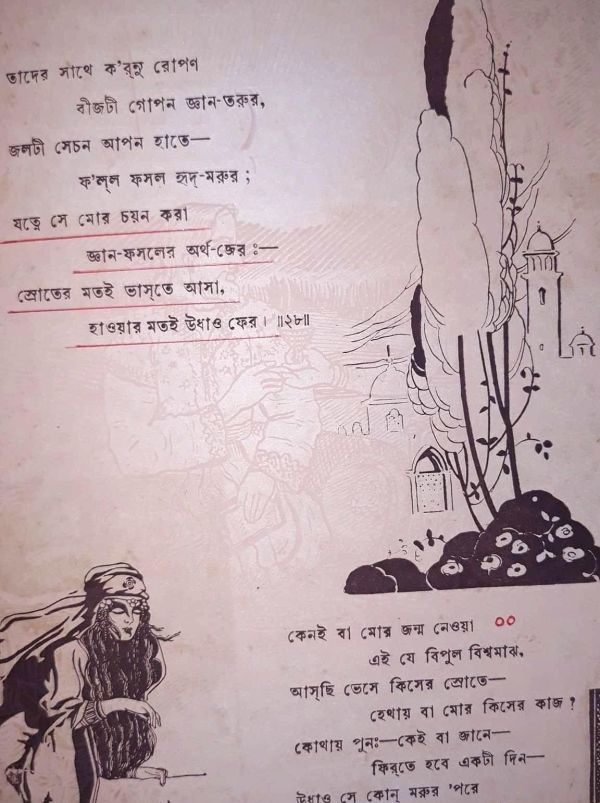 তাদের সাথে ক'র্‌নু রোপন
বীজটী গোপন জ্ঞান-তরুর,
জলটী সেচন আপন হাতে—
ফ'ল্‌ল ফসল হৃদ্‌-মরুর ;
যত্নে সে মোর চয়ন করা
জ্ঞান-ফসলের অর্থ-জের ঃ—
স্রোতের মতই ভাস্‌তে আসা,
হাওয়ার মতই উধাও ফের। ॥২৮॥
কেনই বা মোর জন্ম নেওয়া
এই যে বিপুল বিশ্বমাঝ,
আস্‌ছি ভেসে কিসের স্রোতে—
হেথায় বা মোর কিসের কাজ ?
কোথায় পুনঃ—কেই বা জানে—
ফির্‌তে হবে একটী দিন—
উধাও সে কোন্ মরুর 'পরে